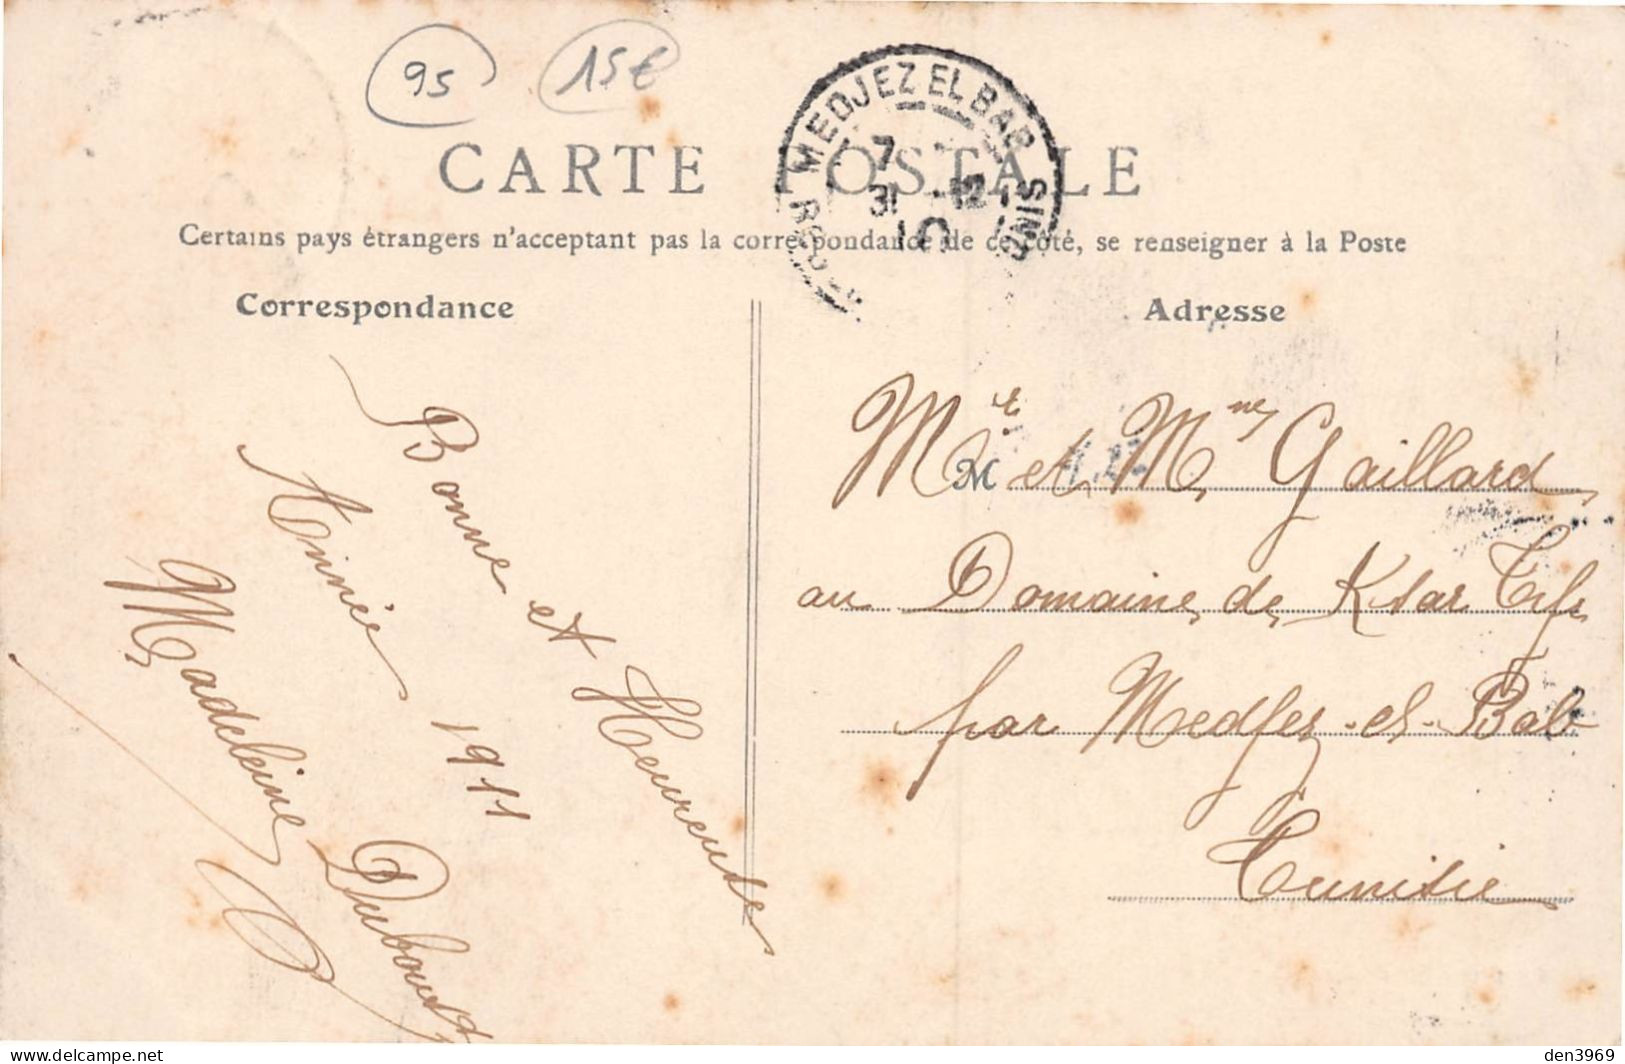 95
15€
CARTE POSTALE
MEDJEZ EL BAB
7
31 12
10
Certains pays étrangers n'acceptant pas la correspondance de ce côté, se renseigner à la Poste
Correspondance
Bonne et Heureuse
Année 1911
Madeleine Duboust
Adresse
M
Mr et Mme Gaillard
au Domaine de Ksar
par Medjez-el-Bab
Tunisie
den3969